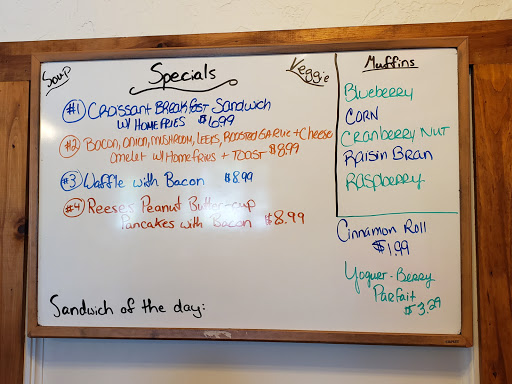 Soup
Specials
Veggie
#1) Croissant Breakfast Sandwich
w/ Homefries $6.99
#2) Bacon, onion, mushroom, leeks, roasted garlic + cheese
omelet w/ Homefries + Toast $8.99
#3) Waffle with Bacon $8.99
#4) Reeses Peanut Butter-cup
Pancakes with Bacon $8.99
Sandwich of the day:
Muffins
Blueberry
Corn
Cranberry Nut
Raisin Bran
Raspberry
Cinnamon Roll
$1.99
Yogurt-Berry
Parfait
$3.29